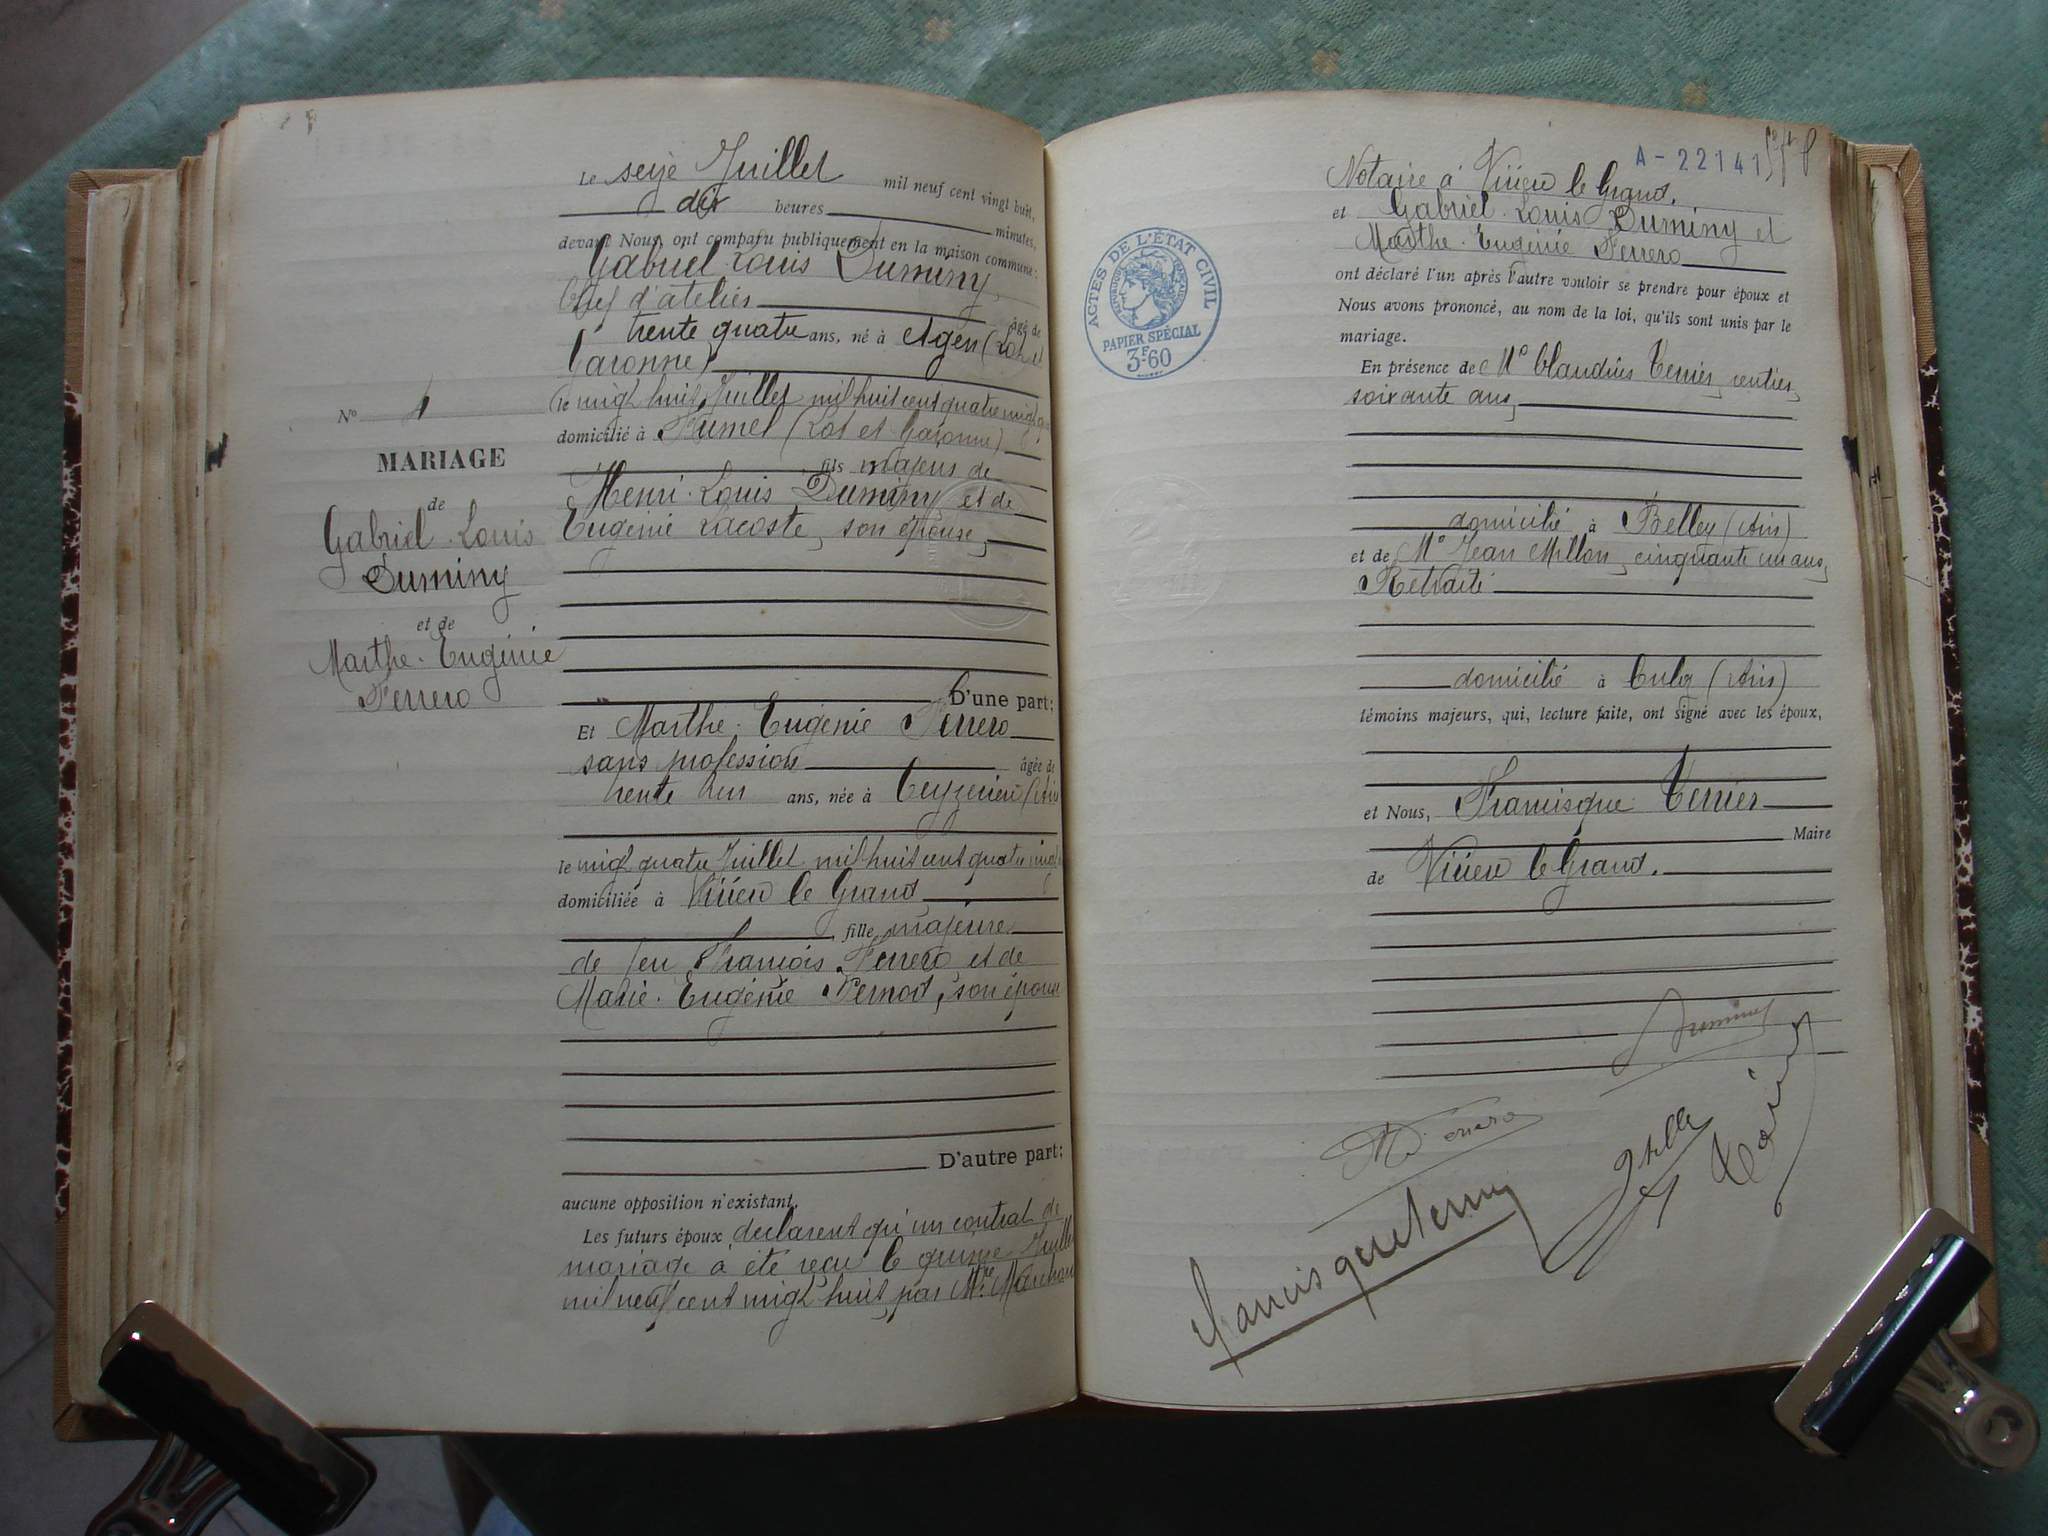 Le seize Juillet mil neuf cent vingt huit,
dix heures minutes,
devant Nous, ont comparu publiquement en la maison commune:
Gabriel Louis Duminy
Chef d'atelier âgé de
trente quatre ans, né à Agen (Lot et
Garonne)
le vingt huit Juillet mil huit cent quatre vingt
domicilié à Fumel (Lot et Garonne)
fils majeur de
Henri Louis Duminy et de
Eugénie Lacoste, son épouse,
D'une part;
Nº 4
MARIAGE
de
Gabriel Louis
Duminy
et de
Marthe Eugénie
Ferrero
Et Marthe Eugénie Ferrero
sans profession âgée de
trente ans, née à Ceyzerieu (Ain
le vingt quatre Juillet mil huit cent quatre vingt
domiciliée à Virieu le Grand
, fille majeure
de feu François Ferrero et de
Marie Eugénie son épouse
D'autre part;
aucune opposition n'existant.
Les futurs époux déclarent qu'un contrat de
mariage a été reçu le quinze Juillet
mil neuf cent vingt huit, par Mtre
A-22141
Notaire à Virieu le Grand.
et Gabriel Louis Duminy et
Marthe Eugénie Ferrero
ont déclaré l'un après l'autre vouloir se prendre pour époux et
Nous avons prononcé, au nom de la loi, qu'ils sont unis par le
mariage.
ACTES DE L'ÉTAT CIVIL
RÉPUBLIQUE FRANÇAISE
PAPIER SPÉCIAL
3F.60
En présence de Mº Claudius Terrier, rentier,
soixante ans,
domicilié à Belley (Ain)
et de Mº Jean Millon, cinquante un ans,
Retraité
domicilié à Culoz (Ain)
témoins majeurs, qui, lecture faite, ont signé avec les époux,
et Nous, Francisque Terrier
Maire
de Virieu le Grand.
Duminy
M Ferrero
Francisque Terrier